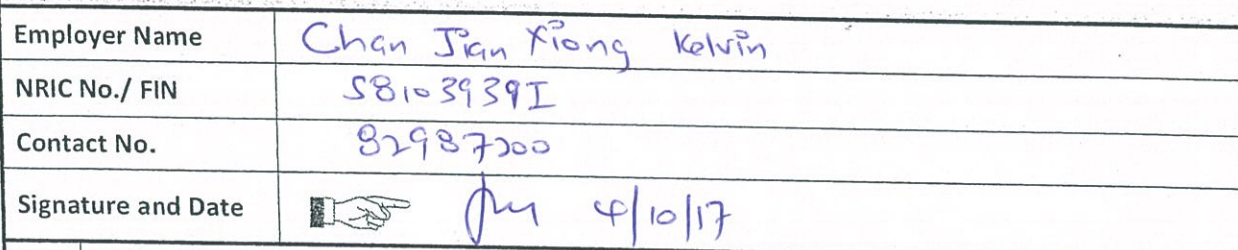 Employer Name Chan Jian Xiong Kelvin
NRIC No./ FIN S8103939I
Contact No.
Signature and Date 4/10/17